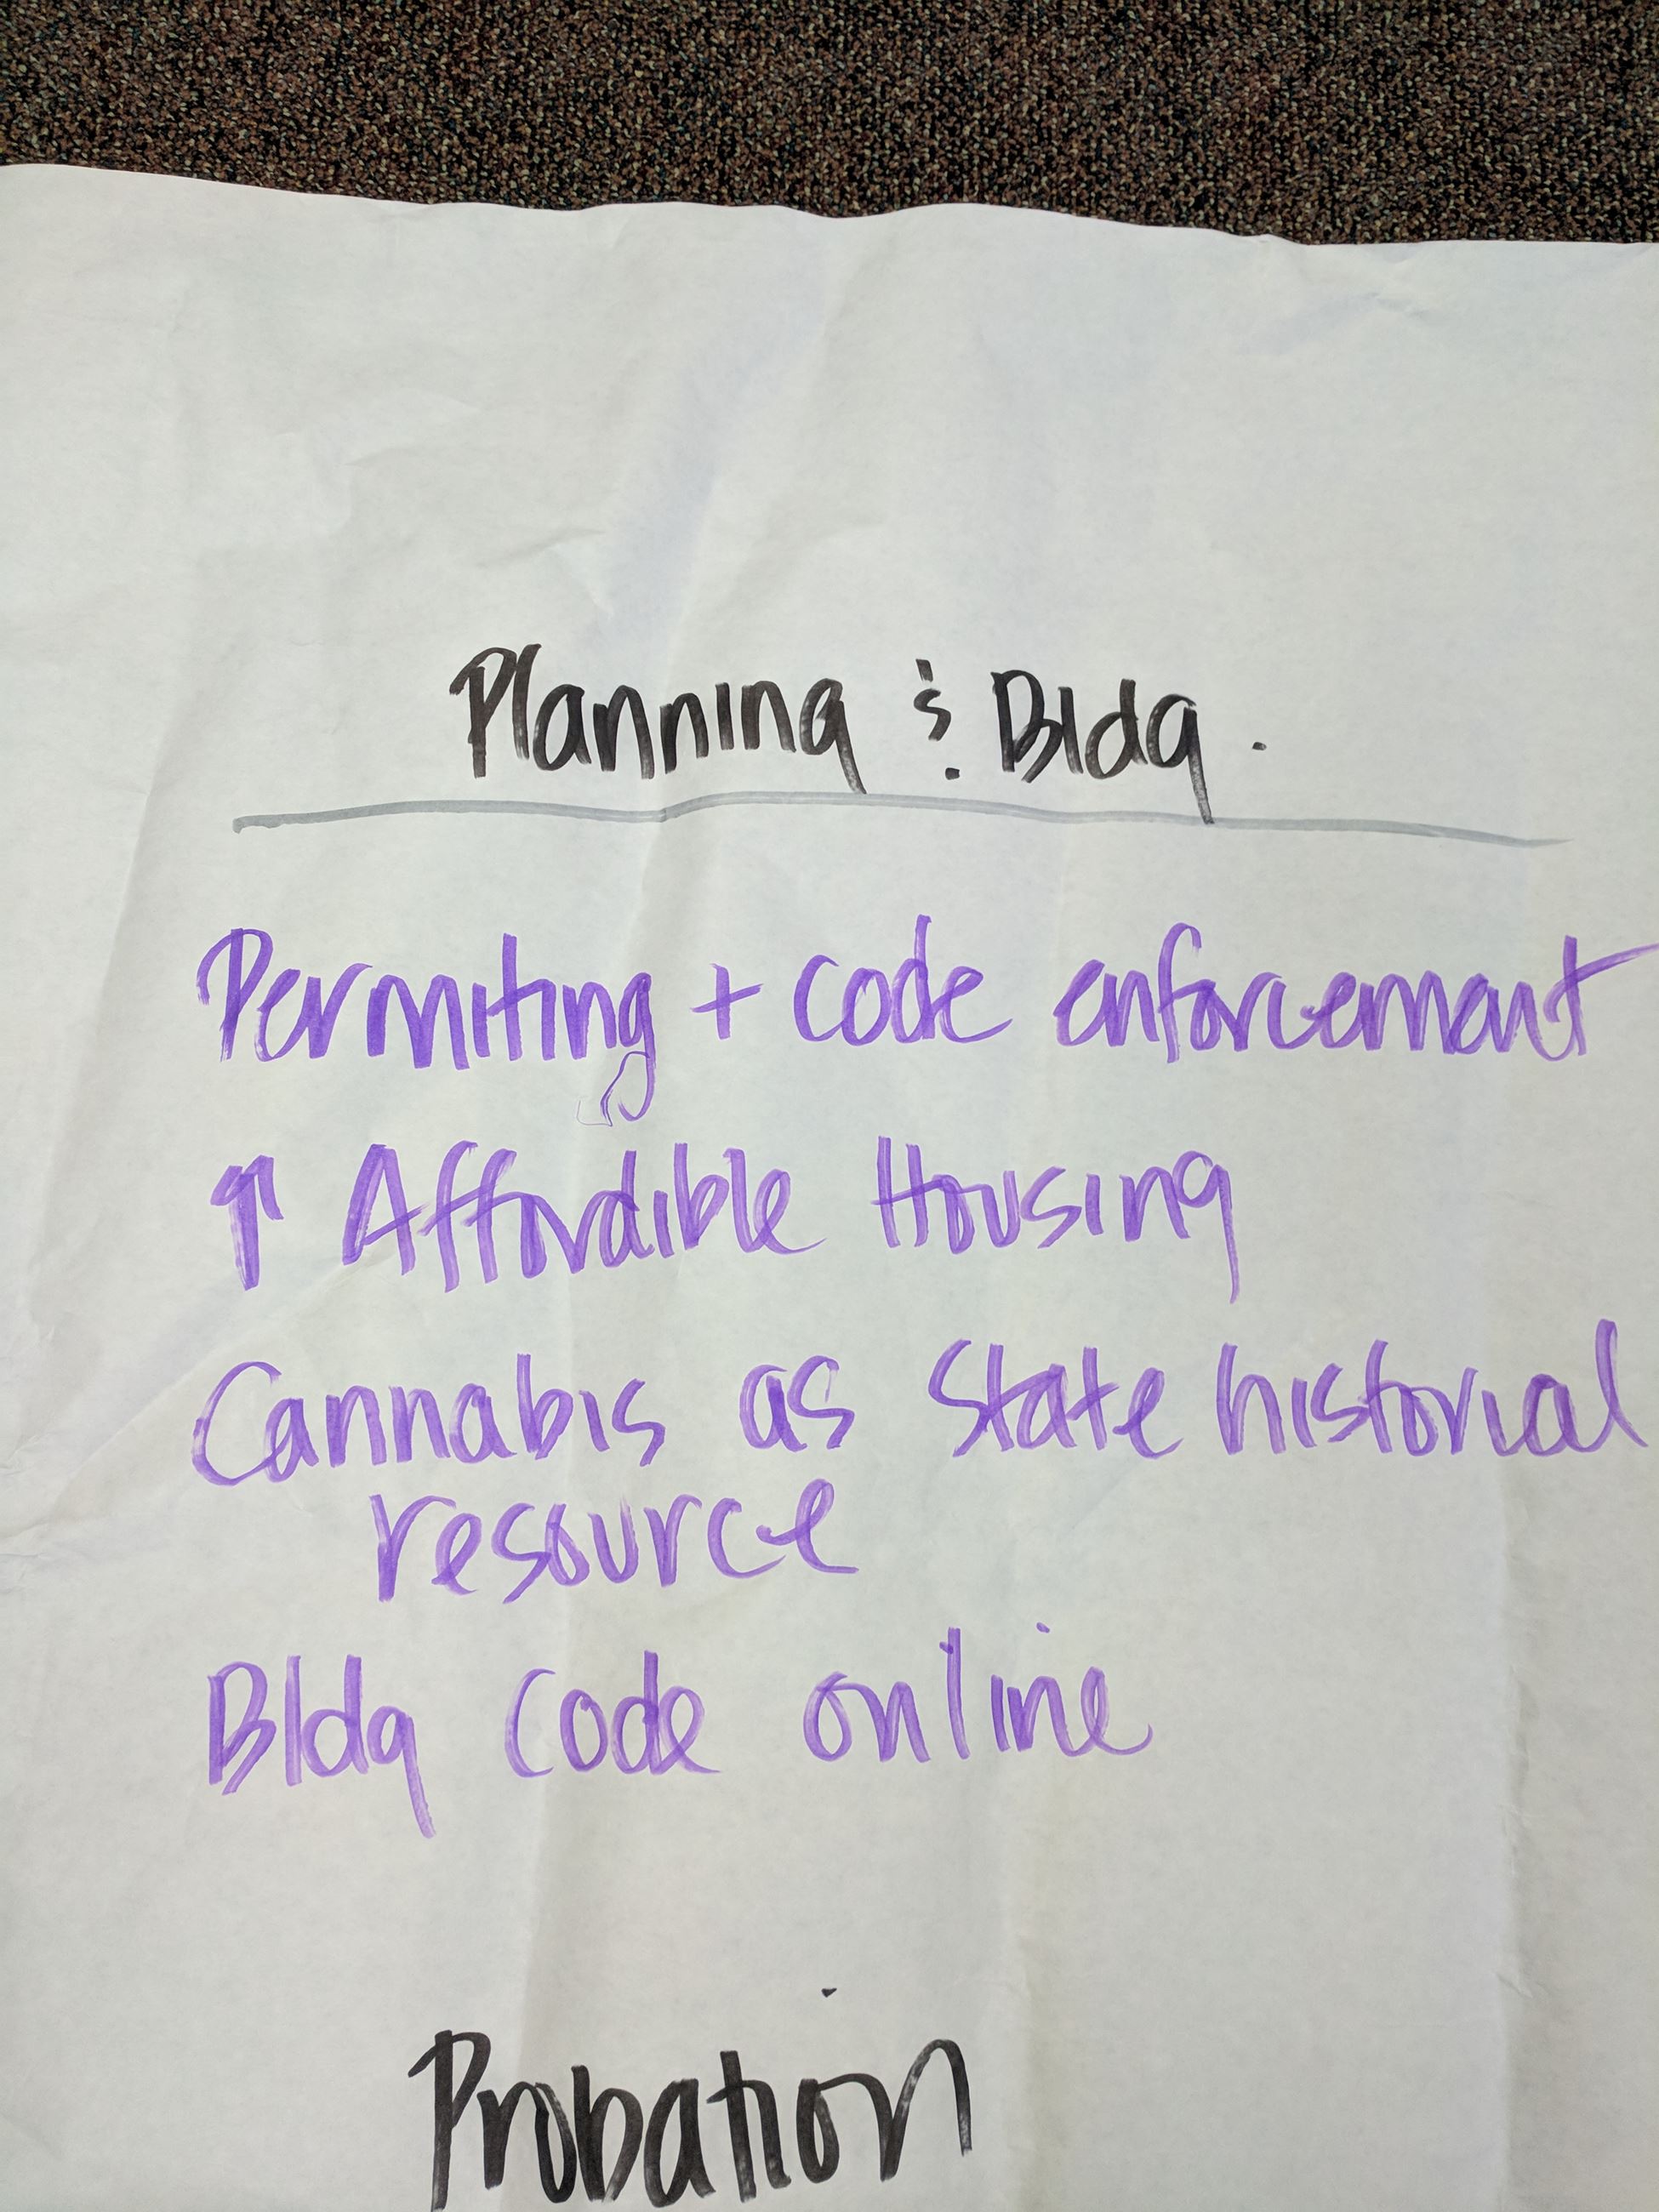 Planning & Bldg.
Permiting + code enforcement
↑ Affordible Housing
Cannabis as state historial
resource
Bldg code online
Probation